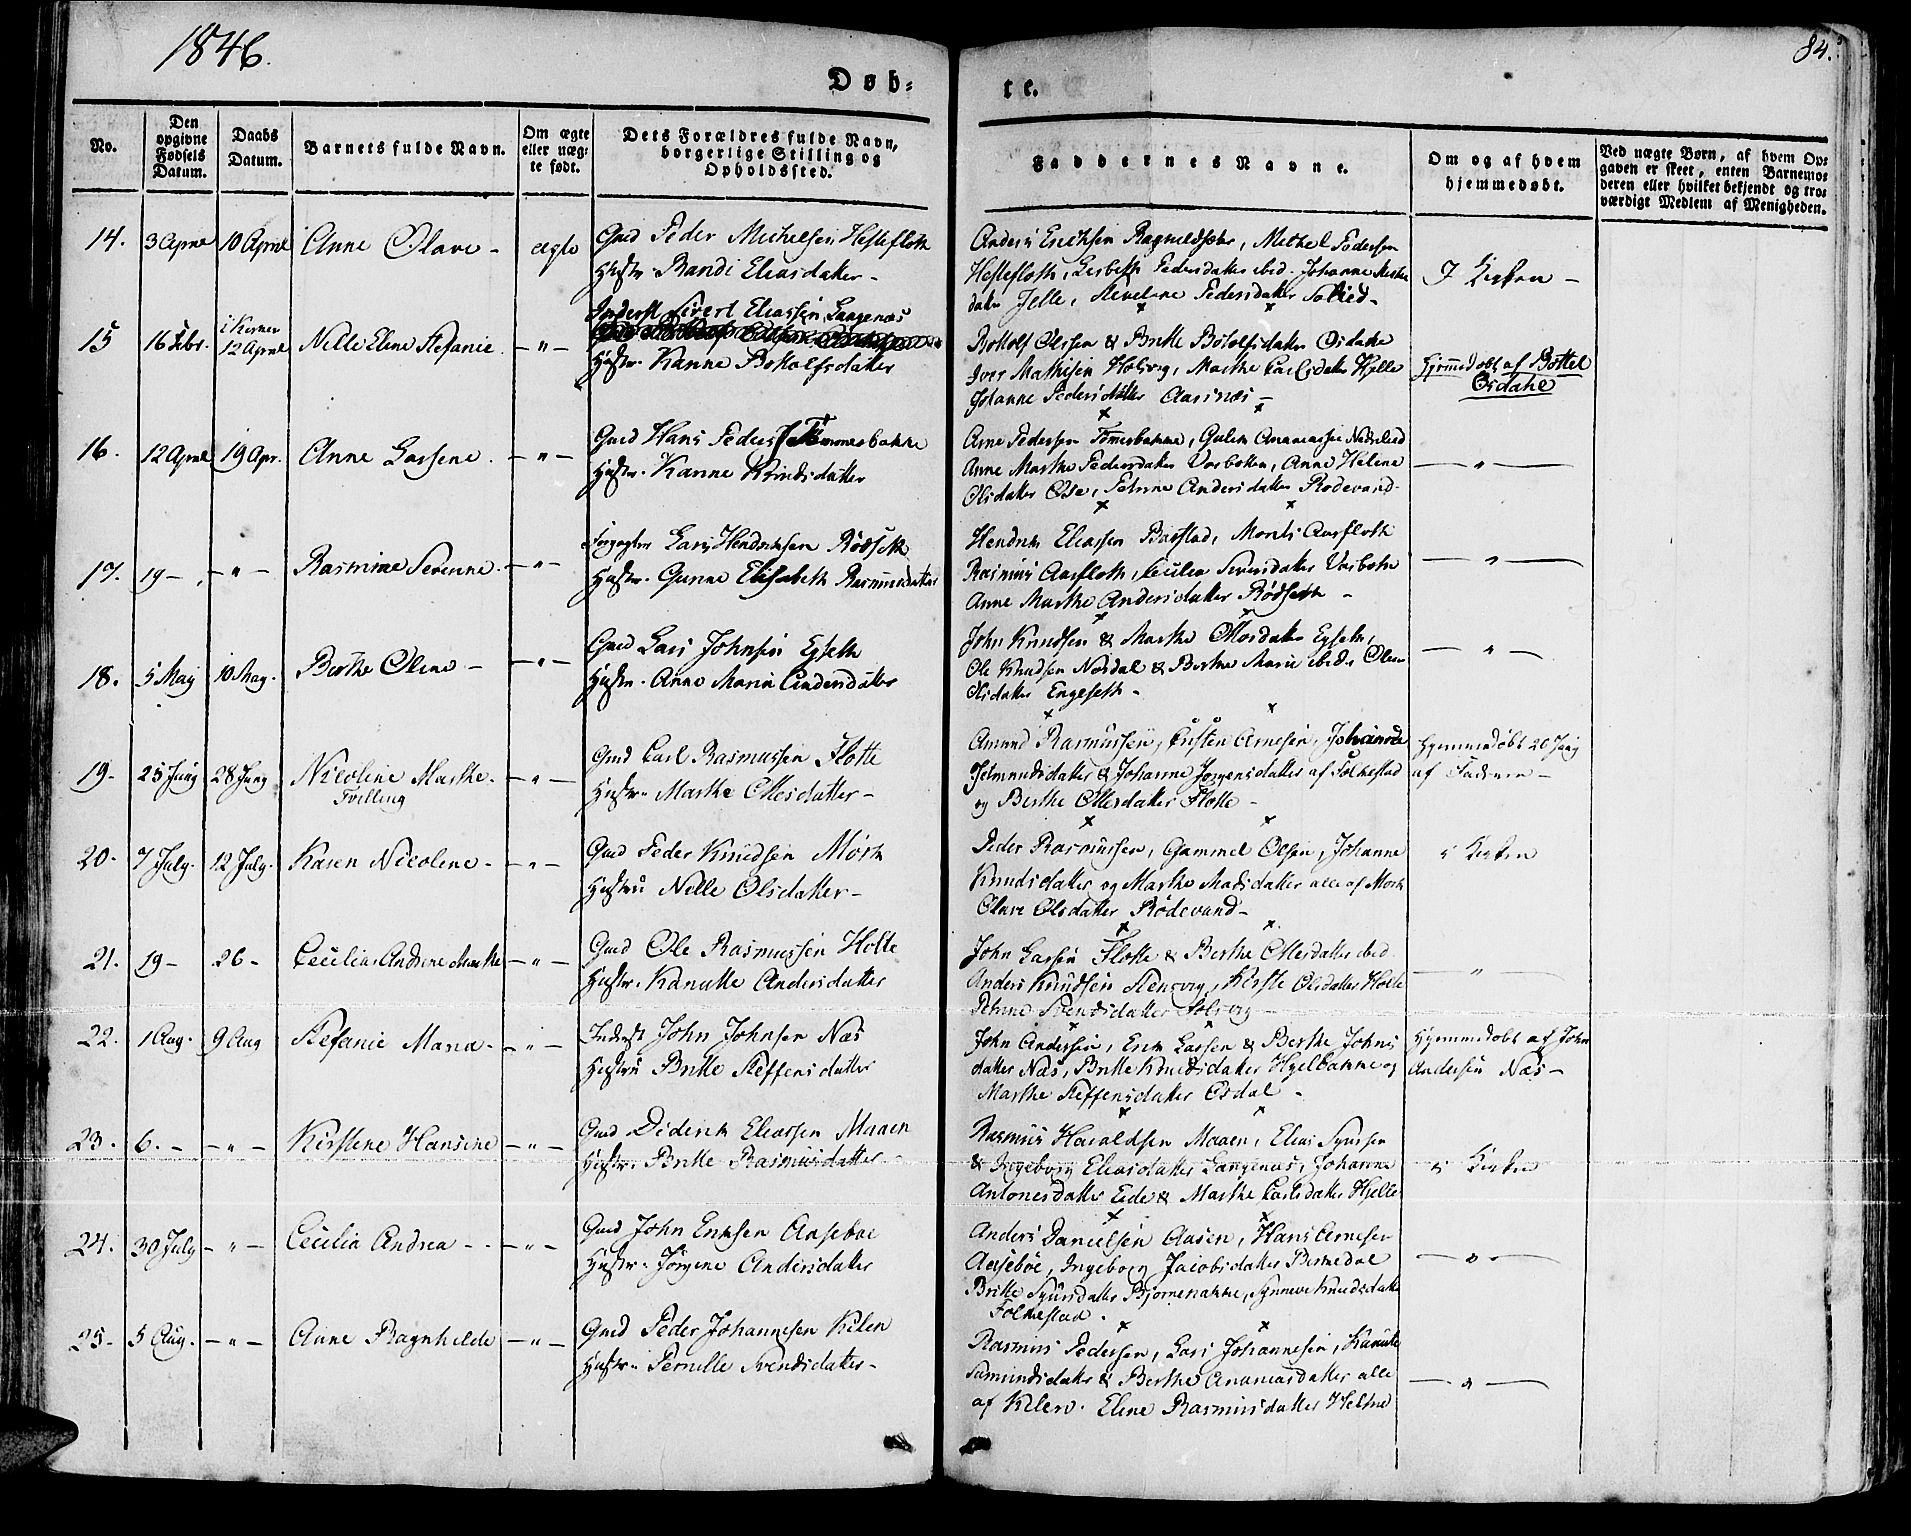 1846.
84.
Døb-
te.
No.
Den opgivne Fødsels Datum.
Daabs Datum.
Barnets fulde Navn.
Om ægte eller uæg-te født.
Dets Forældres fulde Navn, borgerlige Stilling og Opholdssted.
Faddernes Navne.
Om og af hvem hjemmedøbt.
Ved uægte Børn, af hvem Op-gaven er skeet, enten Barnemo-deren eller hvilket bekjendt og tro-værdigt Medlem af Menigheden.
14. 3 April 10 April Anne Olave - ægte
Gmd Peder Michelsen Hestefloth
Hustr. Randi Eliasdatter -
Anders Erichsen Ragnildsæter, Michel Pedersen
Hestefloth, Lisbeth Pedersdatter ibid. Johanne
datter Jelle, Pedersdatter
I Kirken -
15 16 Febr. i Kirken 12 April Nille Eline Stefanie - " -
Inderst Sivert Eliassen Langenæs
Hustr. Hanne Bottolfsdatter
Bottolf Olssen & Britte Botolfsdatter Osdahl
Iver Mathisen Holsvig, Marthe Carlsdatter Hjelle
Johanne Pedersdatter Aarsnæs -
Hjemmedøbt af Bottel
Osdahl
16. 12 April 19 Apr. Anne Larsene. - " -
Gmd Hans Peders Tømmerbakke
Hustr. Hanne Knudsdatter
Arne Pedersen Tømerbakke, Gulik Ananiassen Nedrelied
Anne Marthe Pedersdatter Vasbotten, Anne Helene
Olsdatter Ose, Petrine Andersdatter Rødevand.
- " -
17. 19 - - " - Rasmine Severine. - " -
Lars Hendrichsen Rødseth
Hustr. Gunne Elisabeth Rasmusdatter
Hendrik Eliassen Barstad, Monts Aarfloth
Rasmus Aarfloth, Cecilia Siversdatter Vasbotn
Anne Marthe Andersdatter Rødseth -
- " -
18. 5 May 10 May. Berthe Oline - - " -
Gmd Lars Johnsen Egseth
Hustr. Anne Maria Andersdatter
John Knudsen & Marthe Ottersdatter Egseth,
Ole Knudsen Nordal & Berthe Marie ibid & Oline
Olsdatter Engeseth -
- " -
19. 25 Juny 28 Juny Nicoline Marthe. - " -
Tvilling
Gmd Carl Rasmussen Flotte
Hustr. Marthe Ottersdatter -
Amund Rasmussen, Arnesen, Johanne
datter & Johanne Jørgensdatter af Folkestad
og Berthe Ottersdatter Flotte -
Hjemmedøbt 20 Juny
af Faderen -
20. 7 July. 12 July. Karen Nicoline - - " -
Gmd Peder Knudsen Mørk
Hustru Nille Olsdatter -
Peder Rasmussen, Gammel Olsen, Johanne
Knudsdatter og Marthe Madsdatter alle af Mørk
Olave Olsdatter Rødevand -
i Kirken
21. 19 - 26 - Cecilia Andrine Marthe - " -
Gmd Ole Rasmussen Holte
Hustr. Kanutte Andersdatter
John Larsen Flotte & Berthe Ottersdatter ibid.
Anders Knudsen Stensvig, Olsdatter Holte
Petrine Svendsdatter Solsvig -
- " -
22. 1 Aug. 9 Aug Stefanie Maria - - " -
Inderst John Johnsen Næs
Hustru Britte Steffensdatter
John Andersen, Erik Larsen & Berthe Johns
datter Næs, Britte Knudsdatter Hjelbakke og
Marthe Steffensdatter Osdal -
Hjemmedøbt af John
Andersen Næs -
23. 6. - - " - Kirstine Hansine - " -
Gmd Diderik Eliassen Maaen
Hustr. Britte Rasmusdatter -
Rasmus Haraldsen Maaen, Elias Syvrsen
& Ingeborg Eliasdatter Langenæs, Johanne
Antonesdatter Eide & Marthe Carlsdatter Hjelle
i Kirken
24. 30 July - " - Cecilia Andrea - - " -
Gmd John Eriksen Aasebøe
Hustr. Jørgine Andersdatter
Anders Danielsen Aasen, Hans Arnesen
Aasebøe, Ingeborg Jacobsdatter Bernedal
Britte Syvrsdatter Bjørnebakke, Synneve Knudsdatter
Folkestad.
- " -
25. 5 Aug. - " - Anne Ragnhilde - " -
Gmd Peder Johannesen Kilen
Hustr. Pernille Svendsdatter -
Rasmus Pedersen, Lars Johannesen, Kanutte
Samundsdatter & Berthe Ananiasdatter alle
af Kilen. Eline Rasmusdatter Heltne
- " -